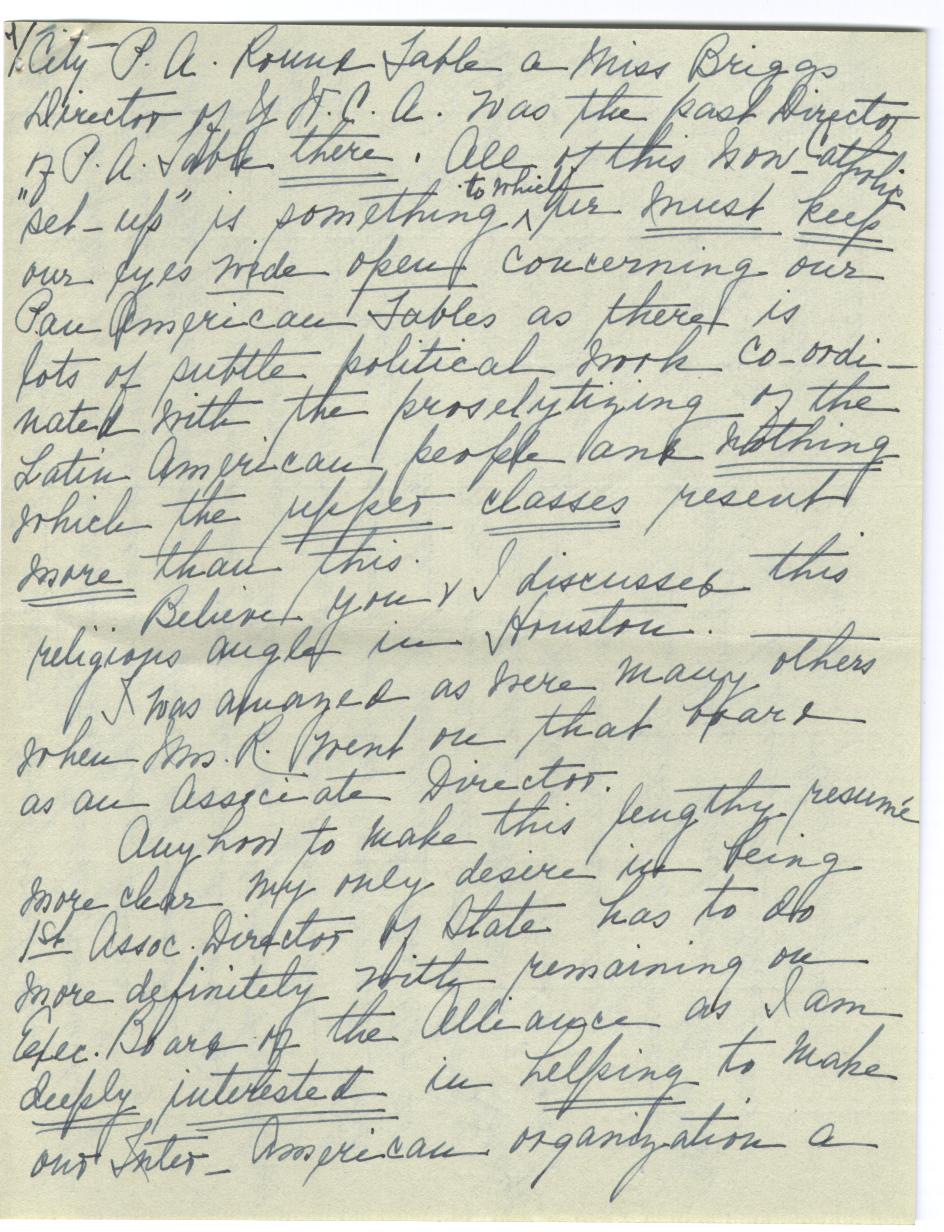 7/
City P. A. Round Table a Miss Briggs
Director of Y W. C. A. was the past Director
of P. A. Table there. All of this Non-Catholic
"set-up" is something to which we must keep
our eyes wide open concerning our
Pan American Tables as there is
lots of subtle political work co-ordi-
nated with the proselytizing of the
Latin American people and nothing
which the upper classes resent
more than this.
Believe you & I discussed this
religious angle in Houston.
I was amazed as were many others
when Mrs. R. went on that board
as an Associate Director.
Anyhow to make this lengthy resumé
more clear my only desire in being
1st Assoc. Director of State has to do
more definitely with remaining on
Exec. Board of the Alliance as I am
deeply interested in helping to make
our Inter-American organization a